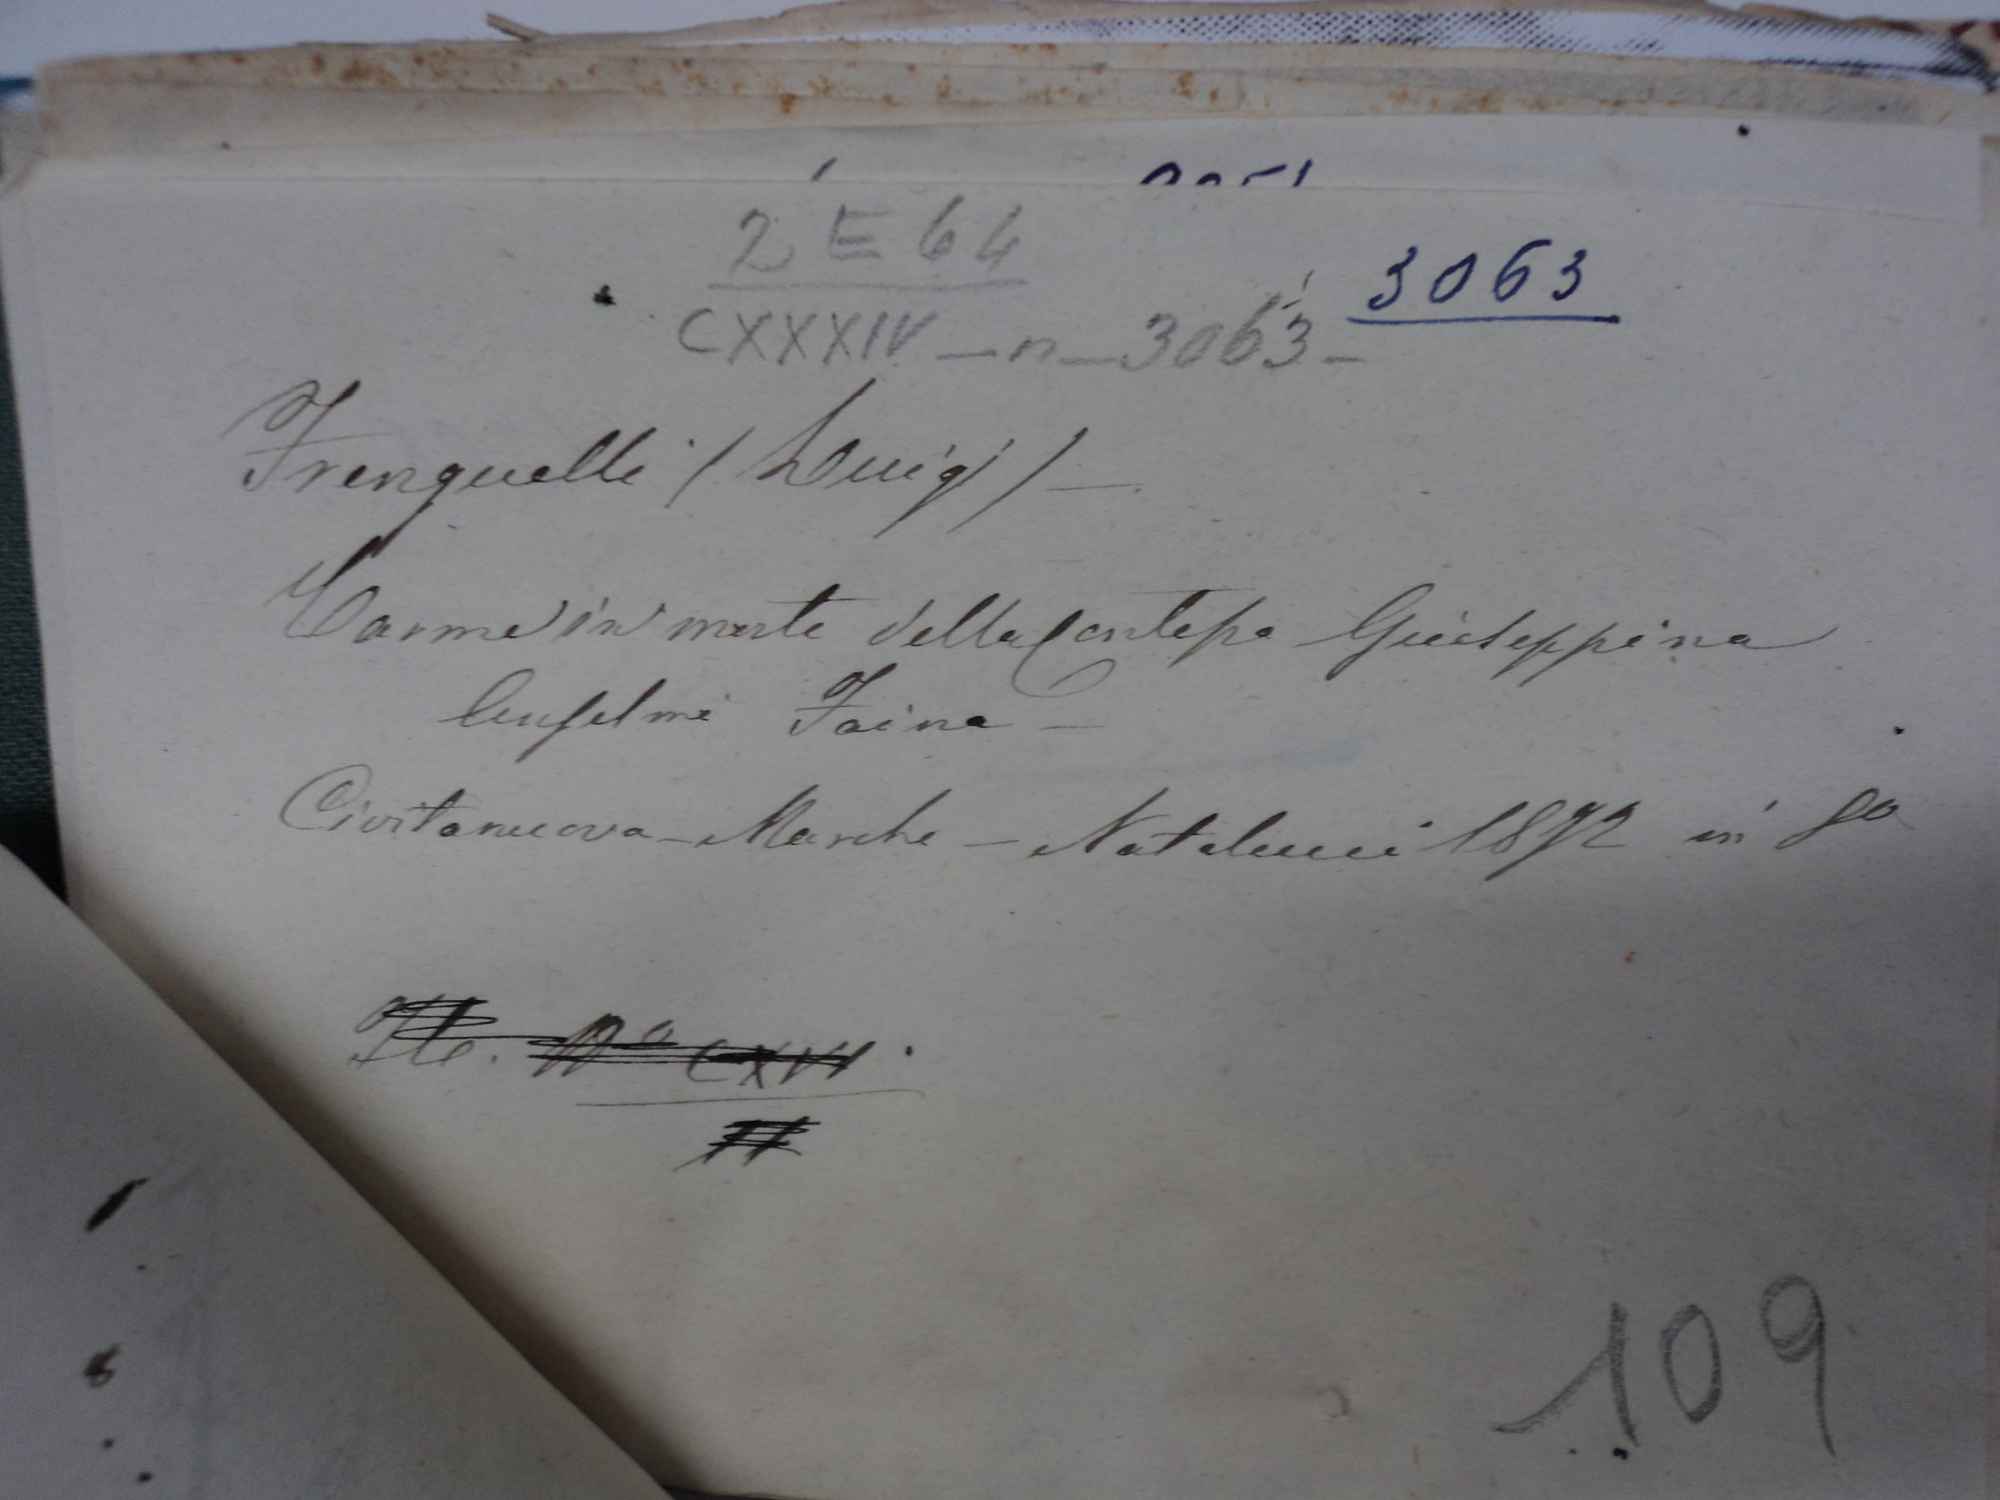 2 E 64
3063
CXXXIV - n - 3063 -
Frenquelli (Luigi) -
Carme in morte della Contessa Giuseppina
Anselmi Faina -
Civitanuova - Marche - Natalucci 1872 in 8º
Nº CXVI.
109